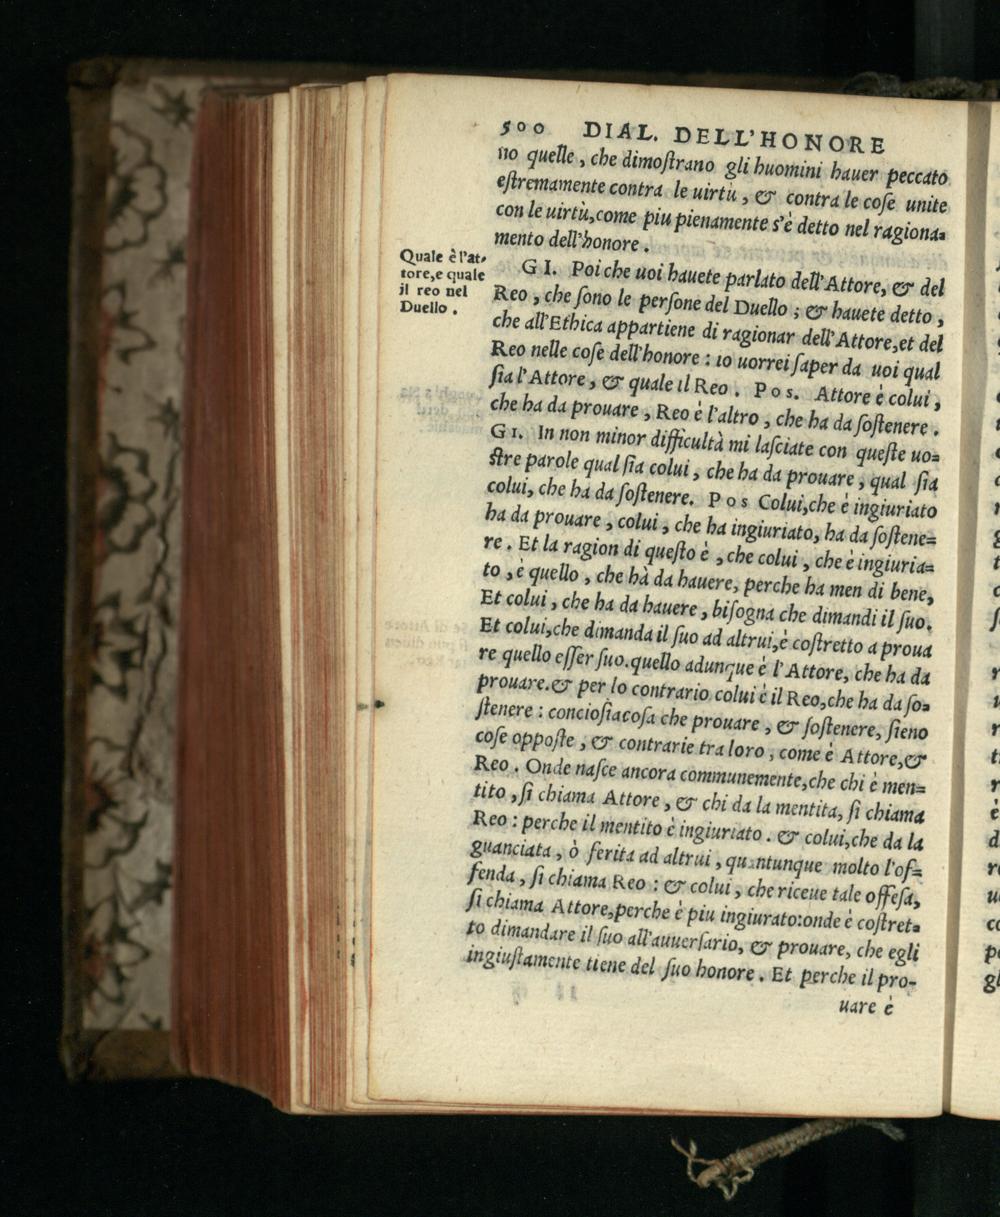 500 DIAL. DELL'HONORE
no quelle, che dimoſtrano gli huomini hauer peccato
eſtremamente contra le uirtù, & contra le coſe unite
con le uirtù, come piu pienamente s'è detto nel ragiona=
mento dell'honore.
Quale è l'at-
tore, e quale
il reo nel
Duello.
GI. Poi che uoi hauete parlato dell'Attore, & del
Reo, che ſono le perſone del Duello; & hauete detto,
che all'Ethica appartiene di ragionar dell'Attore, et del
Reo nelle coſe dell'honore: io uorrei ſaper da uoi qual
ſia l'Attore, & quale il Reo. Pos. Attore è colui,
che ha da prouare, Reo è l'altro, che ha da ſoſtenere.
GI. In non minor difficultà mi laſciate con queſte uo=
ſtre parole qual ſia colui, che ha da prouare, qual ſia
colui, che ha da ſoſtenere. Pos Colui, che è ingiuriato
ha da prouare, colui, che ha ingiuriato, ha da ſoſtene=
re. Et la ragion di queſto è, che colui, che è ingiuria=
to, è quello, che hà da hauere, perche ha men di bene,
Et colui, che ha da hauere, biſogna che dimandi il ſuo.
Et colui, che dimanda il ſuo ad altrui, è coſtretto a proua
re quello eſſer ſuo. quello adunque è l'Attore, che ha da
prouare. & per lo contrario colui è il Reo, che ha da ſo=
ſtenere: concioſiacoſa che prouare, & ſoſtenere, ſieno
coſe oppoſte, & contrarie tra loro, come è Attore, &
Reo. Onde naſce ancora communemente, che chi è men=
tito, ſi chiama Attore, & chi da la mentita, ſi chiama
Reo: perche il mentito è ingiuriato. & colui, che da la
guanciata, ò ferita ad altrui, quantunque molto l'of=
fenda, ſi chiama Reo: & colui, che riceue tale offeſa,
ſi chiama Attore, perche è piu ingiurato: onde è coſtret=
to dimandare il ſuo all'auuerſario, & prouare, che egli
ingiuſtamente tiene del ſuo honore. Et perche il pro-
uare è